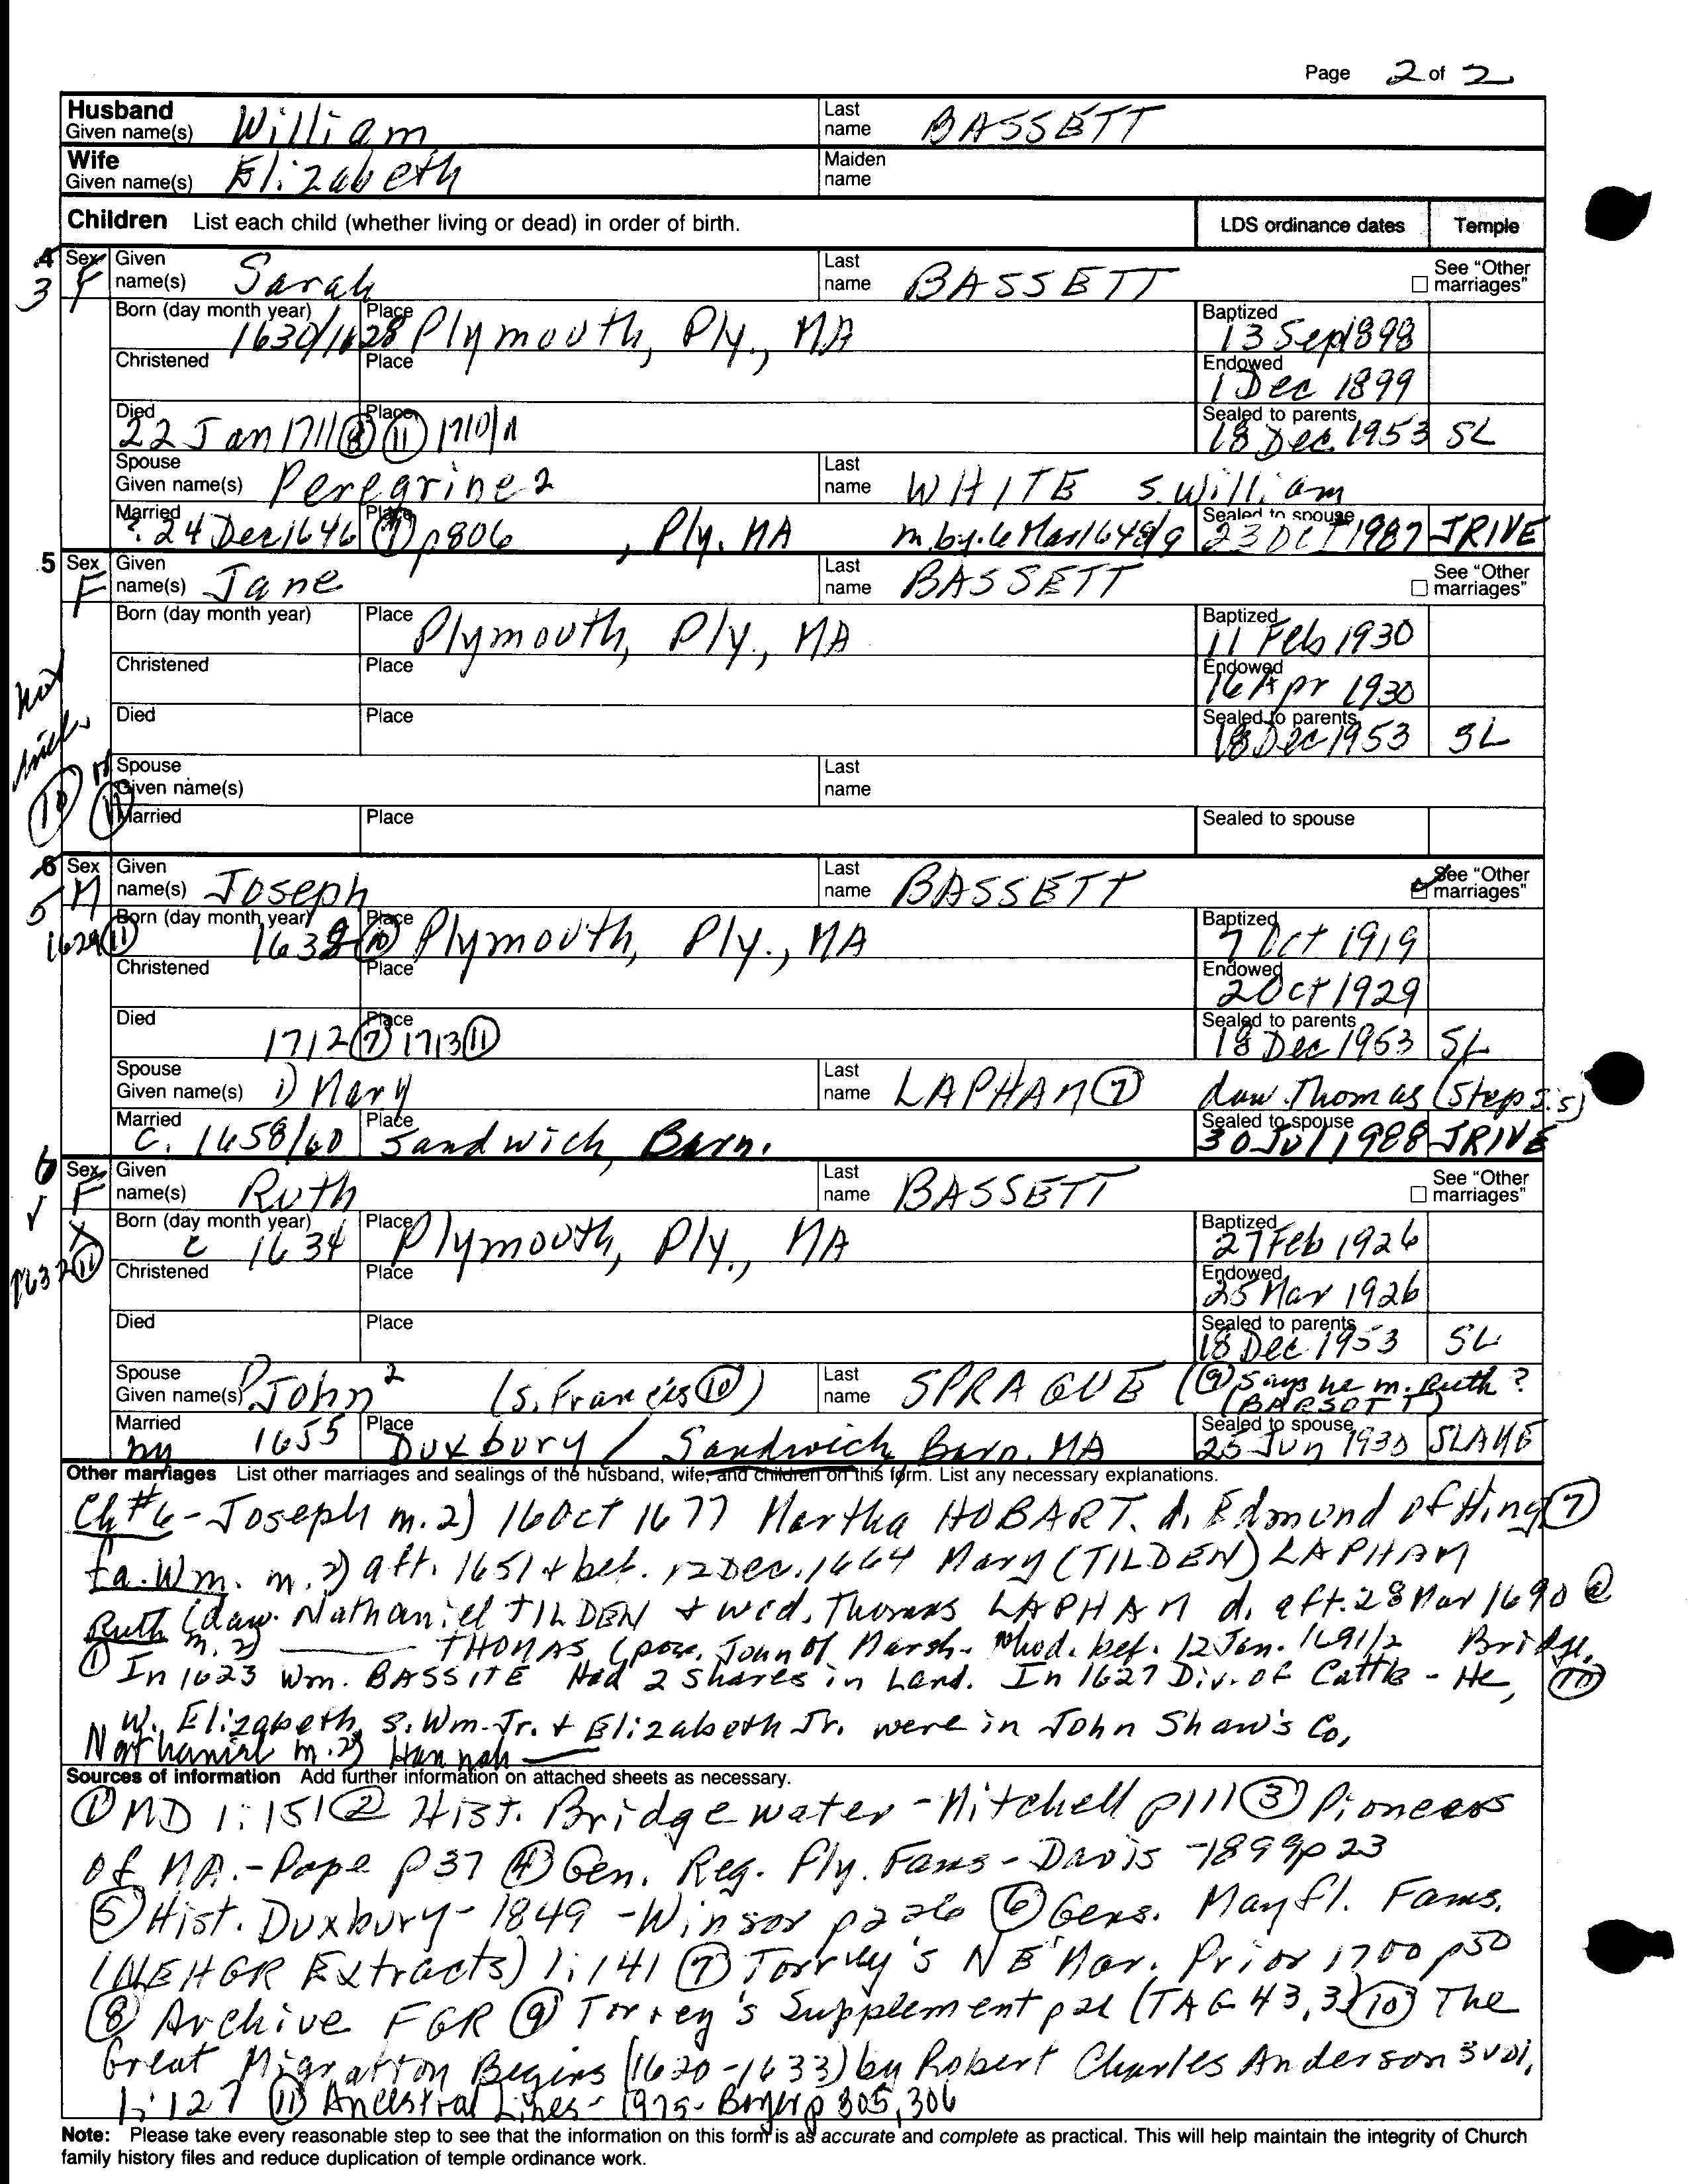 Page 2 of 2
Husband Given name(s) William Last name BASSETT
Wife Given name(s) Elizabeth Maiden name
Children List each child (whether living or dead) in order of birth. LDS ordinance dates Temple
4 3 Sex F Given name(s) Sarah Last name BASSETT See "Other marriages"
Born (day month year) 1630/1628 Place Plymouth, Ply., MA Baptized 13 Sep 1898
Christened Place Endowed 1 Dec 1899
Died 22 Jan 1711 (8) (11) 1710/11 Place Sealed to parents 18 Dec. 1953 SL
Spouse Given name(s) Peregrine 2 Last name WHITE s. William
Married ? 24 Dec 1646 Place (7) p806 , Ply. MA m. by. 6 Mar 1648/9 Sealed to spouse 23 OCT 1987 JRIVE
5 Sex F Given name(s) Jane Last name BASSETT See "Other marriages"
Born (day month year) Place Plymouth, Ply., MA Baptized 11 Feb 1930
Christened Place Endowed 16 Apr 1930
Died Place Sealed to parents 18 Dec 1953 SL
Not (10) or (11)
Spouse Given name(s) Last name
Married Place Sealed to spouse
6 5 Sex M Given name(s) Joseph Last name BASSETT See "Other marriages"
1629 (11) Born (day month year) 1632 (10) Place Plymouth, Ply., MA Baptized 7 Oct 1919
Christened Place Endowed 2 Oct 1929
Died 1712 (7) 1713 (11) Place Sealed to parents 18 Dec 1953 SL
Spouse Given name(s) 1) Mary Last name LAPHAM (7) dau. Thomas (Step sis)
Married C. 1658/60 Place Sandwich, Barn. Sealed to spouse 30 Jul 1988 JRIVE
6 Sex F Given name(s) Ruth Last name BASSETT See "Other marriages"
1632 (11) Born (day month year) c 1634 Place Plymouth, Ply., MA Baptized 27 Feb 1926
Christened Place Endowed 25 Mar 1926
Died Place Sealed to parents 18 Dec. 1953 SL
Spouse Given name(s) 1) John 2 (s. Francis (10)) Last name SPRAGUE ((9) says he m. Ruth ? (BARSOTT)
Married by 1655 Place Duxbury / Sandwich, Barn. MA Sealed to spouse 25 Jun 1930 SLAKE
Other marriages List other marriages and sealings of the husband, wife, and children on this form. List any necessary explanations.
Ch #6 - Joseph m. 2) 16 Oct 1677 Martha HOBART. d. Edmond of Hing (7)
fa. Wm. m. 2) aft. 1651 + bef. 12 Dec. 1664 Mary (TILDEN) LAPHAM
(dau. Nathaniel TILDEN + wid. Thomas LAPHAM d. aft. 28 Mar 1690 @
Ruth m. 2) THOMAS (poss. John of Marsh. bef. 12 Jan. 1691/2 Bridge.
(1) In 1623 Wm. BASSITE Had 2 shares in Land. In 1627 Div. of Cattle - He, (10)
W. Elizabeth, s. Wm. Jr. + Elizabeth Jr. were in John Shaw's Co,
Nathaniel m. 2) Hannah
Sources of information Add further information on attached sheets as necessary.
(1) MD 1:151 (2) Hist. Bridgewater - Mitchell p111 (3) Pioneers
of MA. - Pope p37 (4) Gen. Reg. Ply. Fams - Davis - 1899 p 23
(5) Hist. Duxbury - 1849 - Winsor p226 (6) Gens. Mayfl. Fams.
(NEHGR Extracts) 1:141 (7) Torrey's NE Mar. Prior 1700 p50
(8) Archive FGR (9) Torrey's Supplement (TAG 43,3) (10) The
Great Migration Begins (1620-1633) by Robert Charles Anderson 3 vol.
1:127 (11) Ancestral Lines - 1975 - Boyer p 305, 306
Note: Please take every reasonable step to see that the information on this form is as accurate and complete as practical. This will help maintain the integrity of Church
family history files and reduce duplication of temple ordinance work.